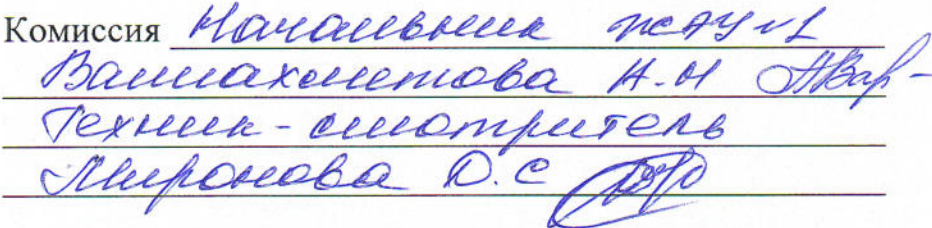 Комиссия Начальник жЭУ №1
Валиахметова А.Н
Техник-смотритель
Миронова О.С